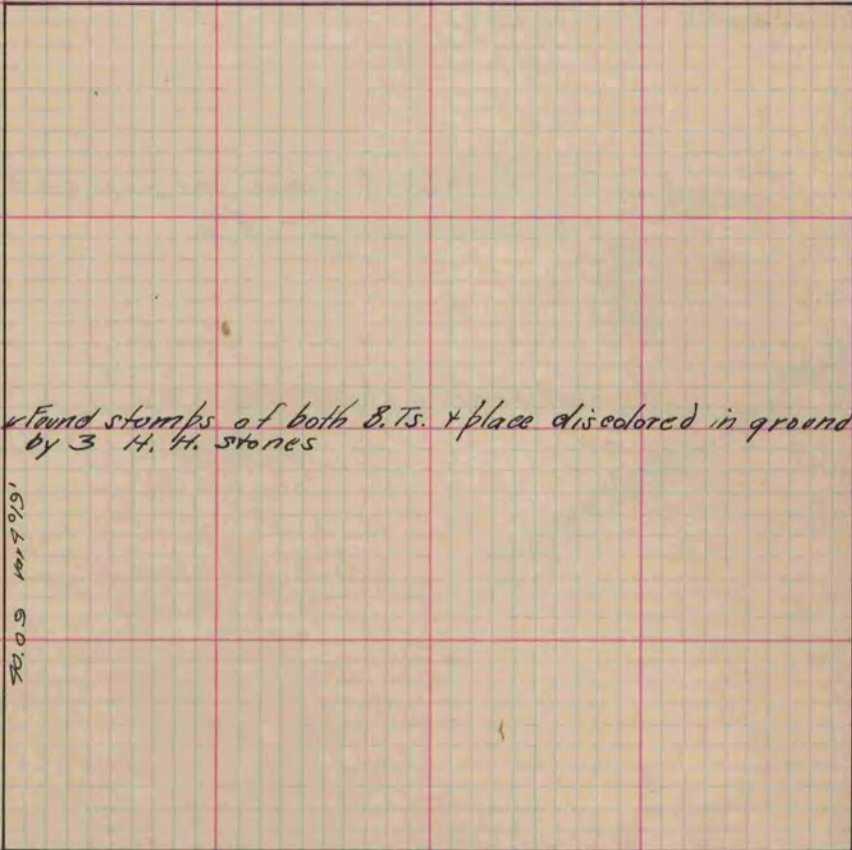 Found stumps of both B.Ts. & place discolored in ground
by 3 H. H. stones